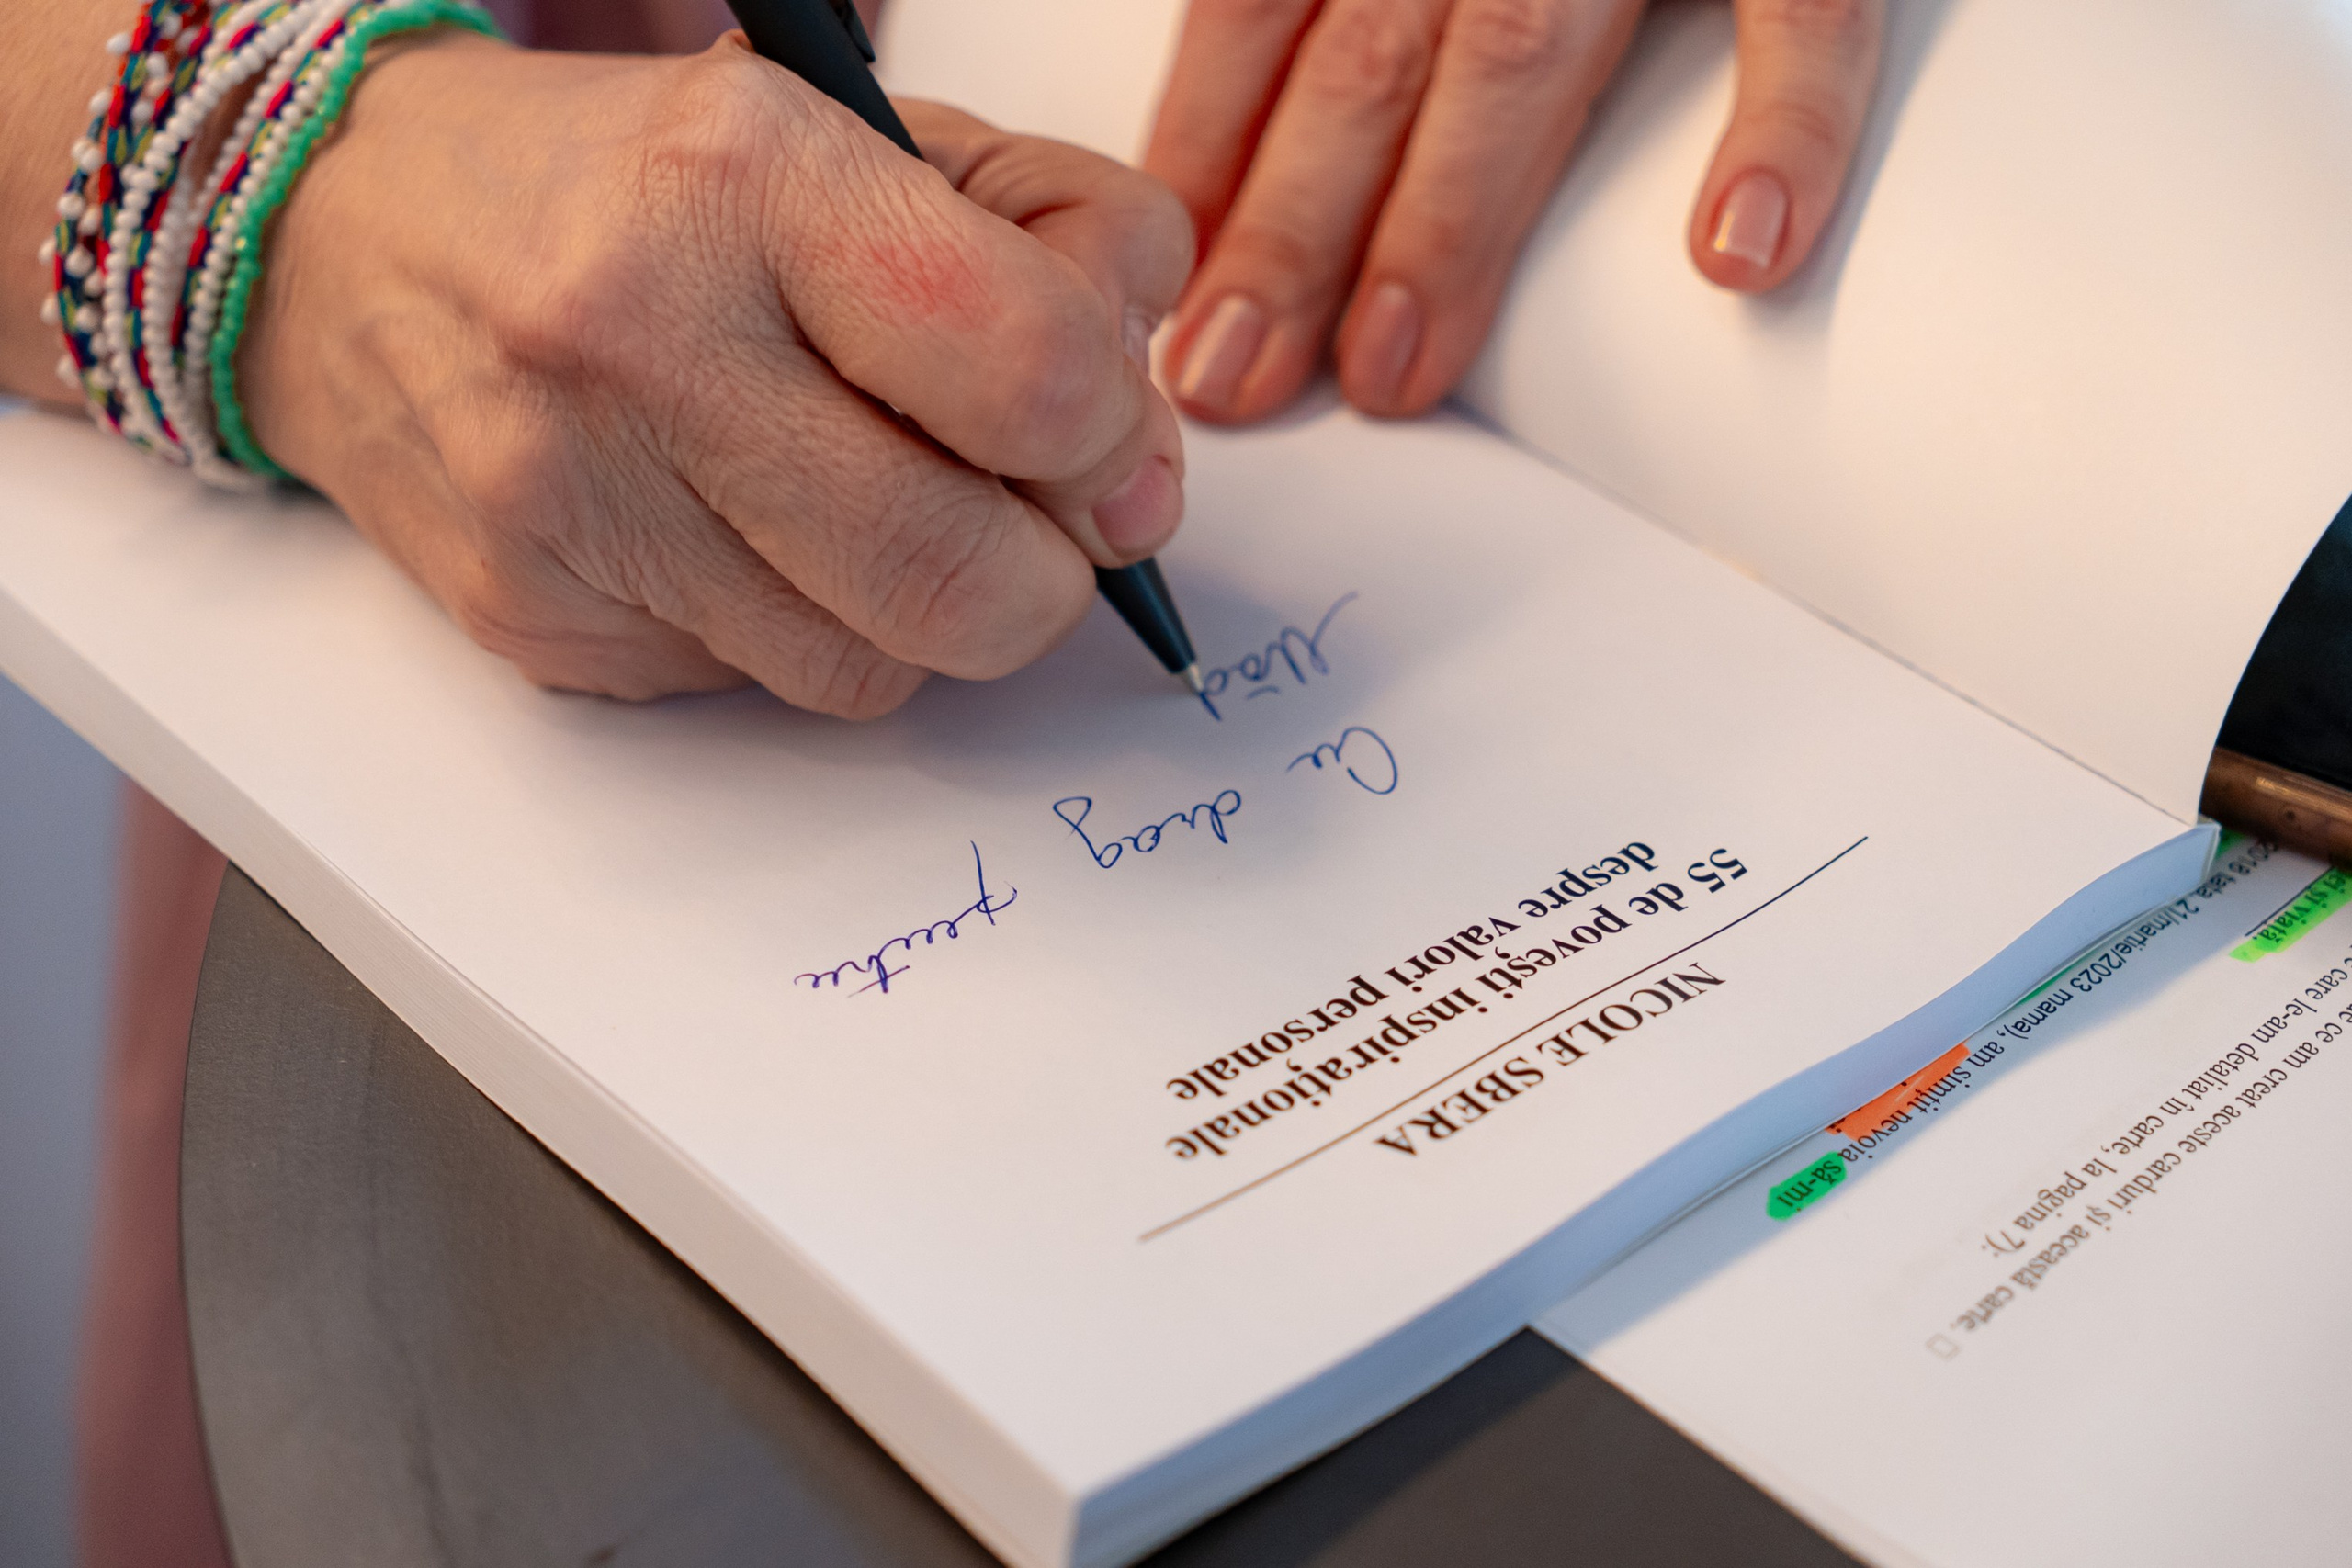 NICOLE SBERA
55 de povești inspiraționale
despre valori personale
Cu drag pentru
Vlad
2018 tata, 21/martie/2023 mama), am simțit nevoia să-mi
și viață.
ce am creat aceste carduri și această carte.
care le-am detaliat în carte, la pagina 7):